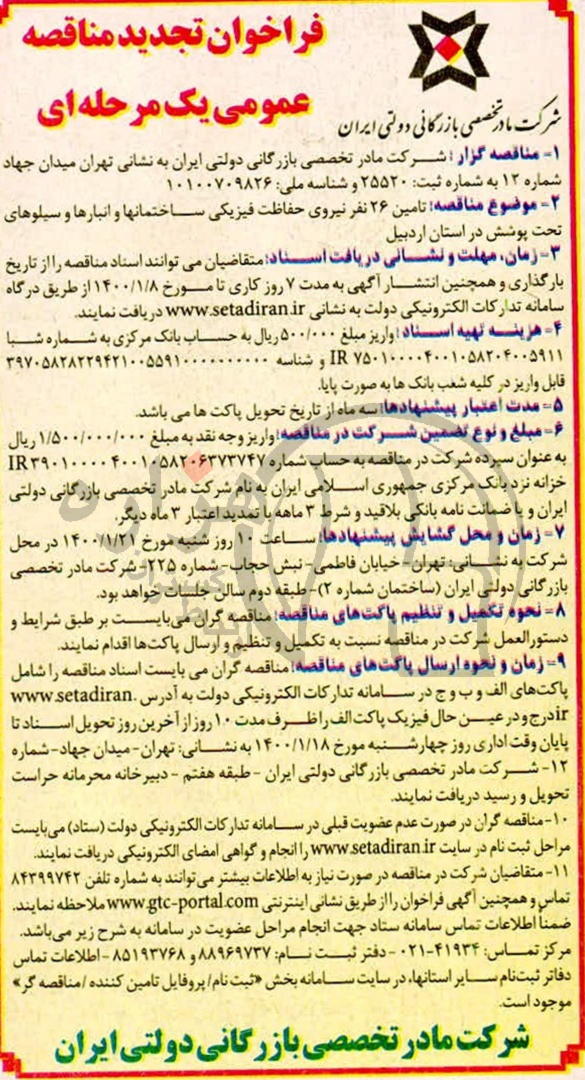 فراخوان تجدید مناقصه
عمومی یک مرحله ای
شرکت مادرتخصصی بازرگانی دولتی ایران
۱- مناقصه گزار : شرکت مادر تخصصی بازرگانی دولتی ایران به نشانی تهران میدان جهاد
شماره ۱۲ به شماره ثبت: ۲۵۵۲۰ و شناسه ملی: ۱۰۱۰۰۷۰۹۸۲۶
۲- موضوع مناقصه: تامین ۲۶ نفر نیروی حفاظت فیزیکی ساختمانها و انبارها و سیلوهای
تحت پوشش در استان اردبیل
۳- زمان، مهلت و نشانی دریافت اسناد: متقاضیان می توانند اسناد مناقصه را از تاریخ
بارگذاری و همچنین انتشار آگهی به مدت ۷ روز کاری تا مورخ ۱۴۰۰/۱/۸ از طریق درگاه
سامانه تدارکات الکترونیکی دولت به نشانی www.setadiran.ir دریافت نمایند.
۴- هزینه تهیه اسناد : واریز مبلغ ۵۰۰/۰۰۰ ریال به حساب بانک مرکزی به شماره شبا
IR ۷۵۰۱۰۰۰۰۴۰۰۱۰۵۸۲۰۴۰۰۵۹۱۱ و شناسه ۳۹۷۰۵۸۲۸۲۲۹۴۲۱۰۰۵۵۹۱۰۰۰۰۰۰۰۰۰۰
قابل واریز در کلیه شعب بانک ها به صورت پایا.
۵- مدت اعتبار پیشنهادها: سه ماه از تاریخ تحویل پاکت ها می باشد.
۶- مبلغ و نوع تضمین شرکت در مناقصه: واریز وجه نقد به مبلغ ۱/۵۰۰/۰۰۰/۰۰۰ ریال
به عنوان سپرده شرکت در مناقصه به حساب شماره IR۳۹۰۱۰۰۰۰۴۰۰۱۰۵۸۲۰۶۳۷۳۷۴۷
خزانه نزد بانک مرکزی جمهوری اسلامی ایران به نام شرکت مادر تخصصی بازرگانی دولتی
ایران و یا ضمانت نامه بانکی بلاقید و شرط ۳ ماهه با تمدید اعتبار ۳ ماه دیگر.
۷- زمان و محل گشایش پیشنهادها: ساعت ۱۰ روز شنبه مورخ ۱۴۰۰/۱/۲۱ در محل
شرکت به نشانی: تهران- خیابان فاطمی- نبش حجاب- شماره ۲۲۵- شرکت مادر تخصصی
بازرگانی دولتی ایران (ساختمان شماره ۲)- طبقه دوم سالن جلسات خواهد بود.
۸- نحوه تکمیل و تنظیم پاکت‌های مناقصه: مناقصه گران می‌بایست بر طبق شرایط و
دستورالعمل شرکت در مناقصه نسبت به تکمیل و تنظیم و ارسال پاکت‌ها اقدام نمایند.
۹- زمان و نحوه ارسال پاکت‌های مناقصه: مناقصه گران می بایست اسناد مناقصه را شامل
پاکت‌های الف و ب و ج در سامانه تدارکات الکترونیکی دولت به آدرس www.setadiran.
ir درج و در عین حال فیزیک پاکت الف را ظرف مدت ۱۰ روز از آخرین روز تحویل اسناد تا
پایان وقت اداری روز چهارشنبه مورخ ۱۴۰۰/۱/۱۸ به نشانی: تهران- میدان جهاد- شماره
۱۲- شرکت مادر تخصصی بازرگانی دولتی ایران - طبقه هفتم - دبیرخانه محرمانه حراست
تحویل و رسید دریافت نمایند.
۱۰- مناقصه گران در صورت عدم عضویت قبلی در سامانه تدارکات الکترونیکی دولت (ستاد) می‌بایست
مراحل ثبت نام در سایت www.setadiran.ir را انجام و گواهی امضای الکترونیکی دریافت نمایند.
۱۱- متقاضیان شرکت در مناقصه در صورت نیاز به اطلاعات بیشتر می‌توانند به شماره تلفن ۸۴۳۹۹۷۴۲
تماس و همچنین آگهی فراخوان را از طریق نشانی اینترنتی www.gtc-portal.com ملاحظه نمایند.
ضمناً اطلاعات تماس سامانه ستاد جهت انجام مراحل عضویت در سامانه به شرح زیر می‌باشد.
مرکز تماس: ۴۱۹۳۴-۰۲۱ - دفتر ثبت نام: ۸۸۹۶۹۷۳۷ و ۸۵۱۹۳۷۶۸ - اطلاعات تماس
دفاتر ثبت‌نام سایر استانها، در سایت سامانه بخش «ثبت نام/ پروفایل تامین کننده /مناقصه گر»
موجود است.
شرکت مادر تخصصی بازرگانی دولتی ایران